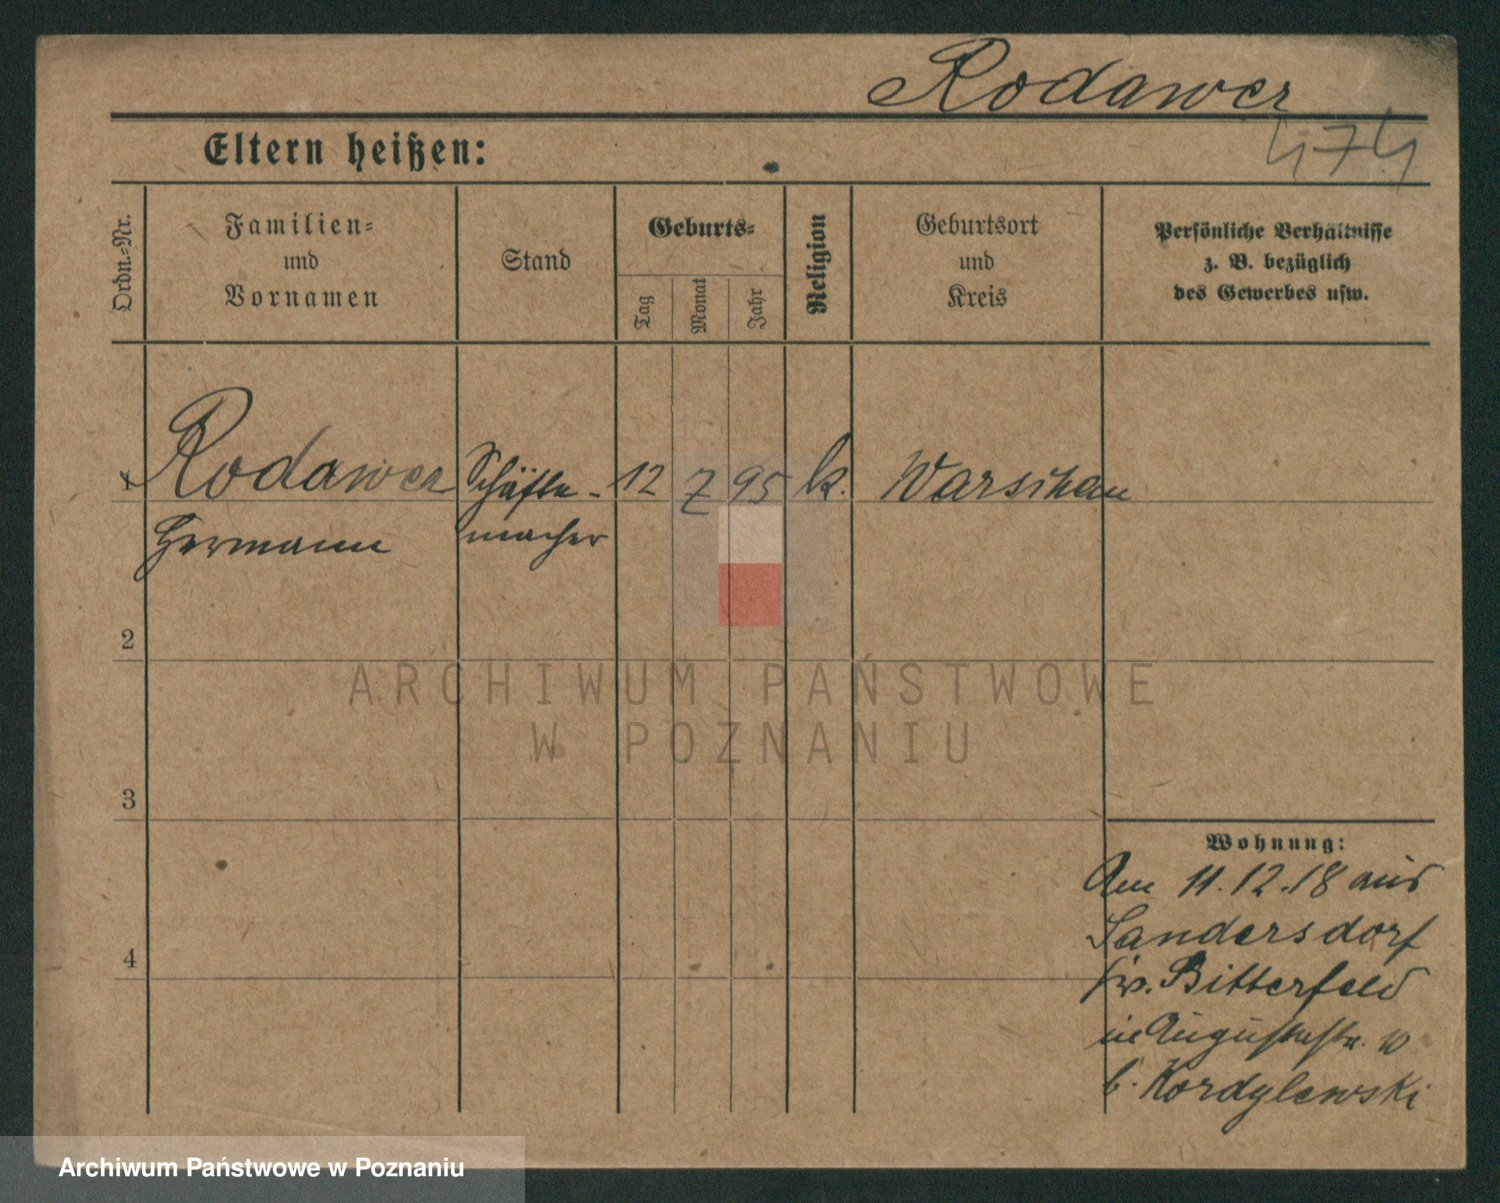 Rodawer
474
Eltern heißen:
Ordn.-Nr.
Familien-
und
Vornamen
Stand
Geburts-
Tag
Monat
Jahr
Religion
Geburtsort
und
Kreis
Persönliche Verhältnisse
z. B. bezüglich
des Gewerbes usw.
1 Rodawer Schäfte- 12 7 95 k. Warschau
Hermann macher
2
ARCHIWUM PAŃSTWOWE
W POZNANIU
3
Wohnung:
Am 11.12.18 aus
Sandersdorf
4
Bitterfeld
in Augustastr. 10
b. Kordylewski
Archiwum Państwowe w Poznaniu